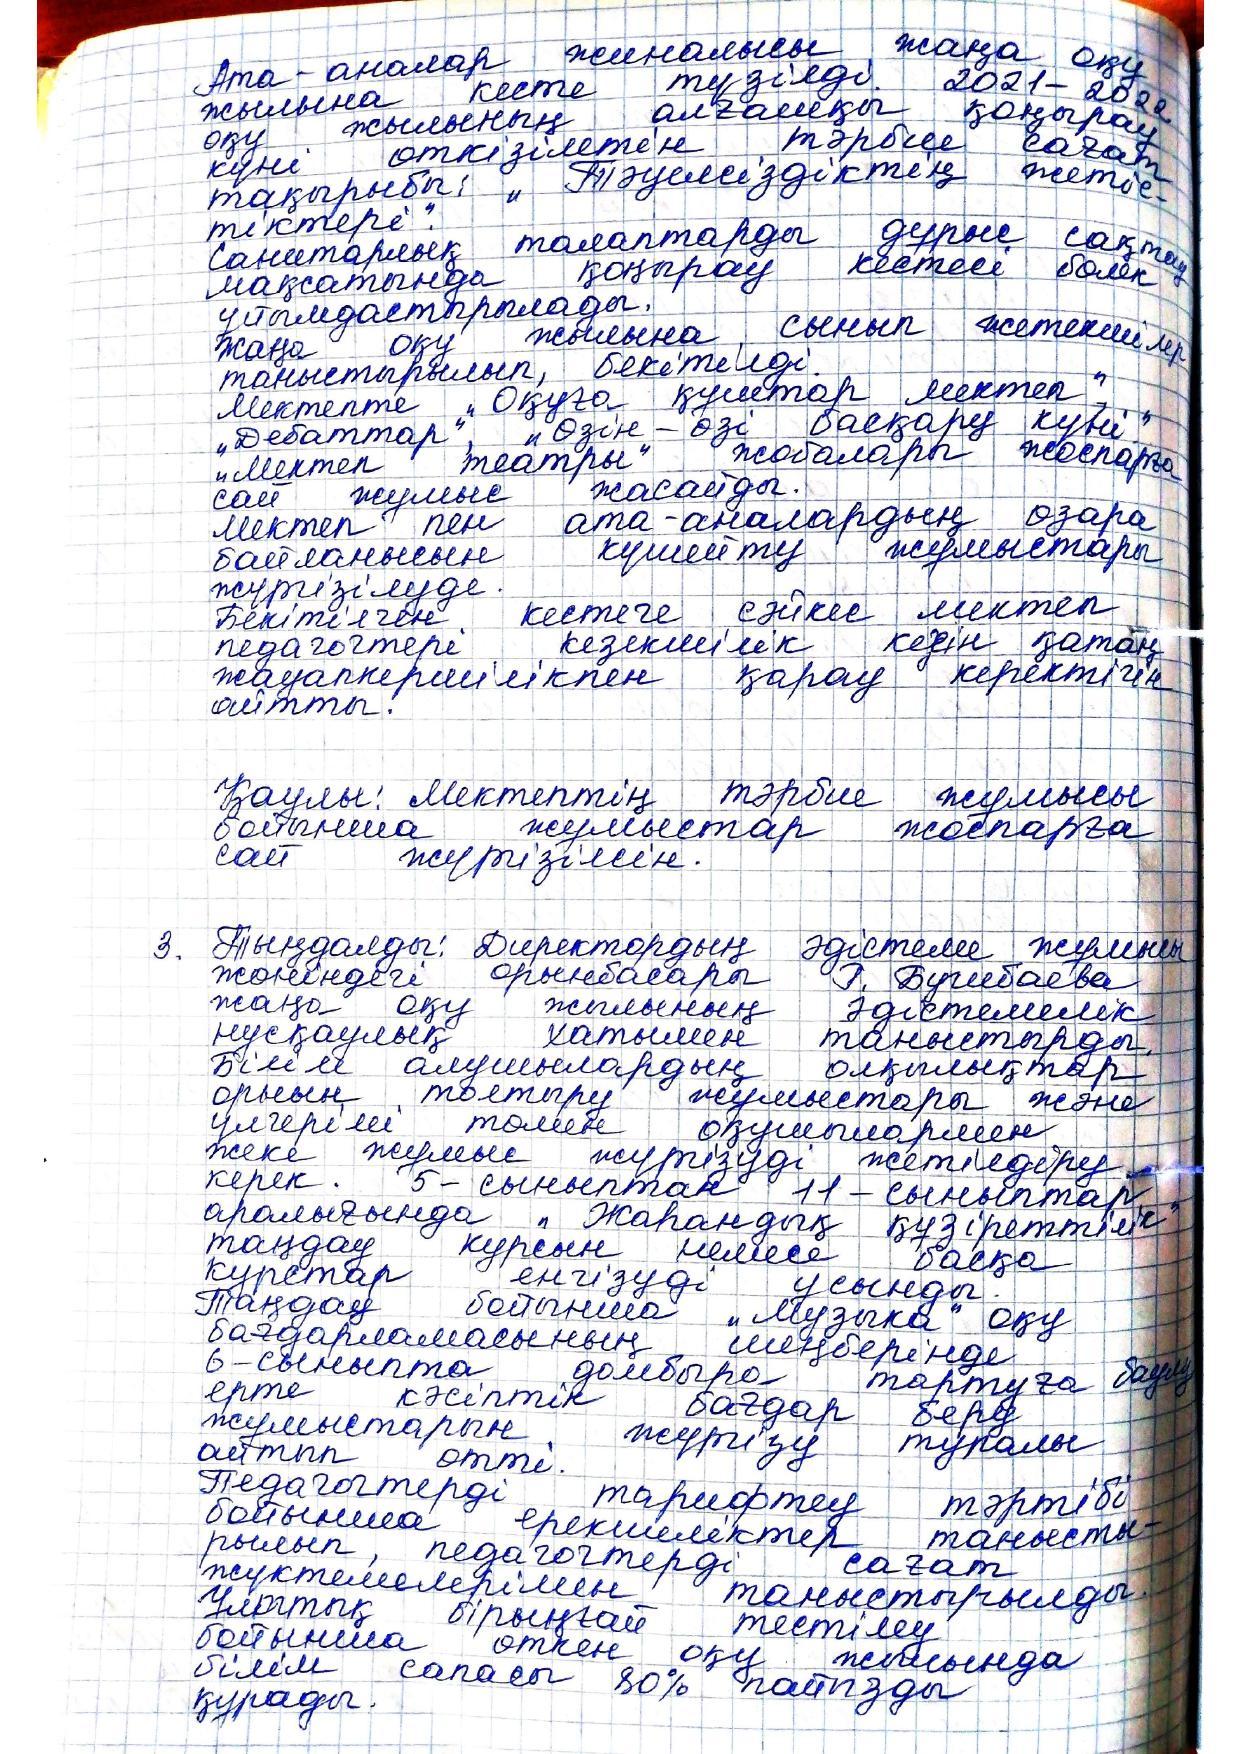 Ата-аналар жиналысы жаңа оқу
жылына кесте түзілді. 2021-2022
оқу жылының алғашқы қоңырау
күні өткізілетін тәрбие сағат
тақырыбы: „Тәуелсіздіктің жетіс-
тіктері".
Санитарлық талаптарды дұрыс сақтау
мақсатында қоңырау кестесі бөлек
ұйымдастырылады.
Жаңа оқу жылына сынып жетекшілер
таныстырылып, бекітілді.
Мектепте „Оқуға құштар мектеп",
„Дебаттар", „Өзін-өзі басқару күні"
„Мектеп театры" жобалары жоспарға
сай жұмыс жасайды.
Мектеп пен ата-аналардың өзара
байланысын күшейту жұмыстары
жүргізілуде.
Бекітілген кестеге сәйкес мектеп
педагогтері кезекшілік кезін қатаң
жауапкершілікпен қарау керектігін
айтты.
Қаулы: Мектептің тәрбие жұмысы
бойынша жұмыстар жоспарға
сай жүргізілсін.
3. Тыңдалды: Директордың әдістеме жұмысы
жөніндегі орынбасары Г. Бушбаева
жаңа оқу жылының әдістемелік
нұсқаулық хатымен таныстырды.
Білім алушылардың олқылықтар
орнын толтыру жұмыстары және
үлгерімі төмен оқушылармен
жеке жұмыс жүргізуді жетілдіру
керек. 5-сыныптан 11-сыныптар
аралығында „Жаһандық құзіреттілік"
таңдау курсын немесе басқа
курстар енгізуді ұсынды.
Таңдау бойынша „Музыка" оқу
бағдарламасының шеңберінде
6-сыныпта домбыра тартуға баулу
ерте кәсіптік бағдар беру
жұмыстарын жүргізу туралы
айтып өтті.
Педагогтерді тарифтеу тәртібі
бойынша ерекшеліктер танысты-
рылып, педагогтерді сағат
жүктемелерімен таныстырылды.
Ұлттық бірыңғай тестілеу
бойынша өткен оқу жылында
білім сапасы 80% пайызды
құрады.